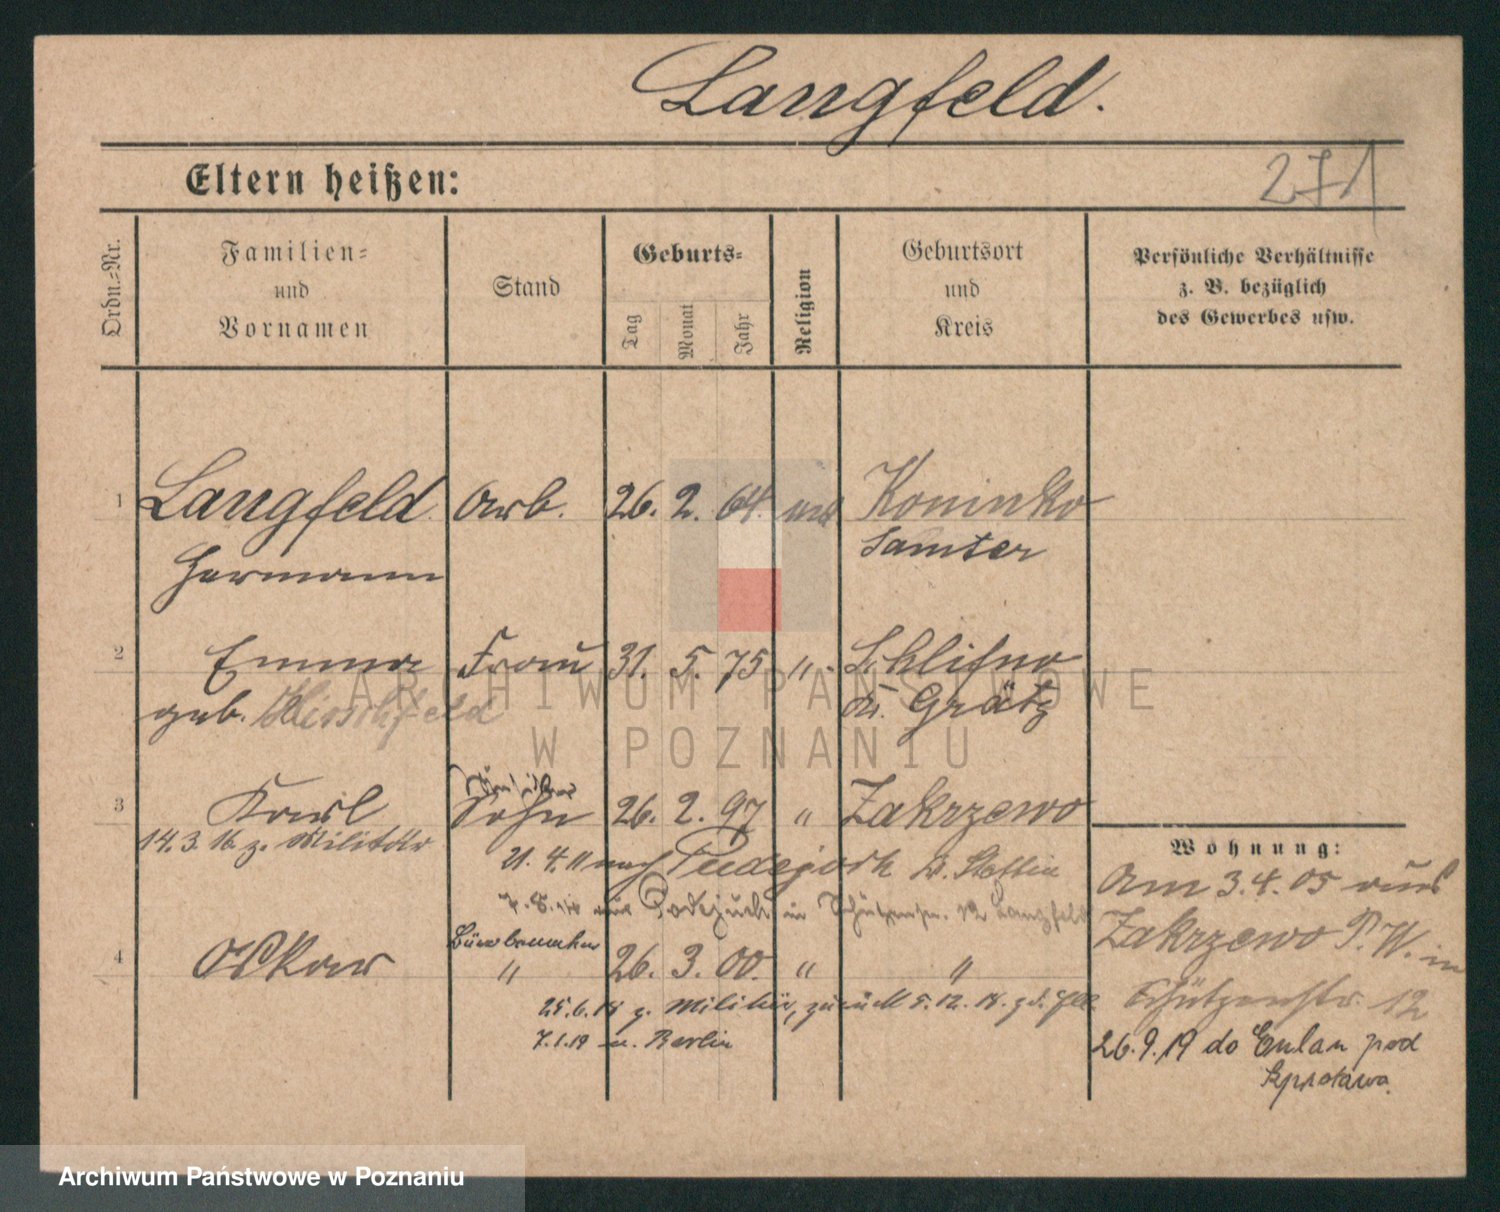 Langfeld.
Eltern heißen:
271
Ordn.-Nr.
Familien-
und
Vornamen
Stand
Geburts-
Tag
Monat
Jahr
Religion
Geburtsort
und
Kreis
Persönliche Verhältnisse
z. B. bezüglich
des Gewerbes usw.
1 Langfeld Arb. 26. 2. 64. Koninko
Hermann Samter
2 Emma Frau 31. 5. 75 " Schlifno
geb. Hirschfeld Kr. Grätz
3 Karl Sohn 26. 2. 97 " Zakrzewo
14. 3. 16 z. Militär
21. 4. 11 nach Pudejuch b. Stettin
aus Podejuch in Schützenstr. 12 Langfeld
4 Oskar " 26. 3. 00. " "
25. 6. 18 z. Militär, zurück 5. 12. 18.
7.1.19 n. Berlin
Wohnung:
Am 3. 4. 05 aus
Zakrzewo P. W. in
Schützenstr. 12
26. 9. 19 do Eulau pod
Szprotawa.
ARCHIWUM PAŃSTWOWE
W POZNANIU
Archiwum Państwowe w Poznaniu